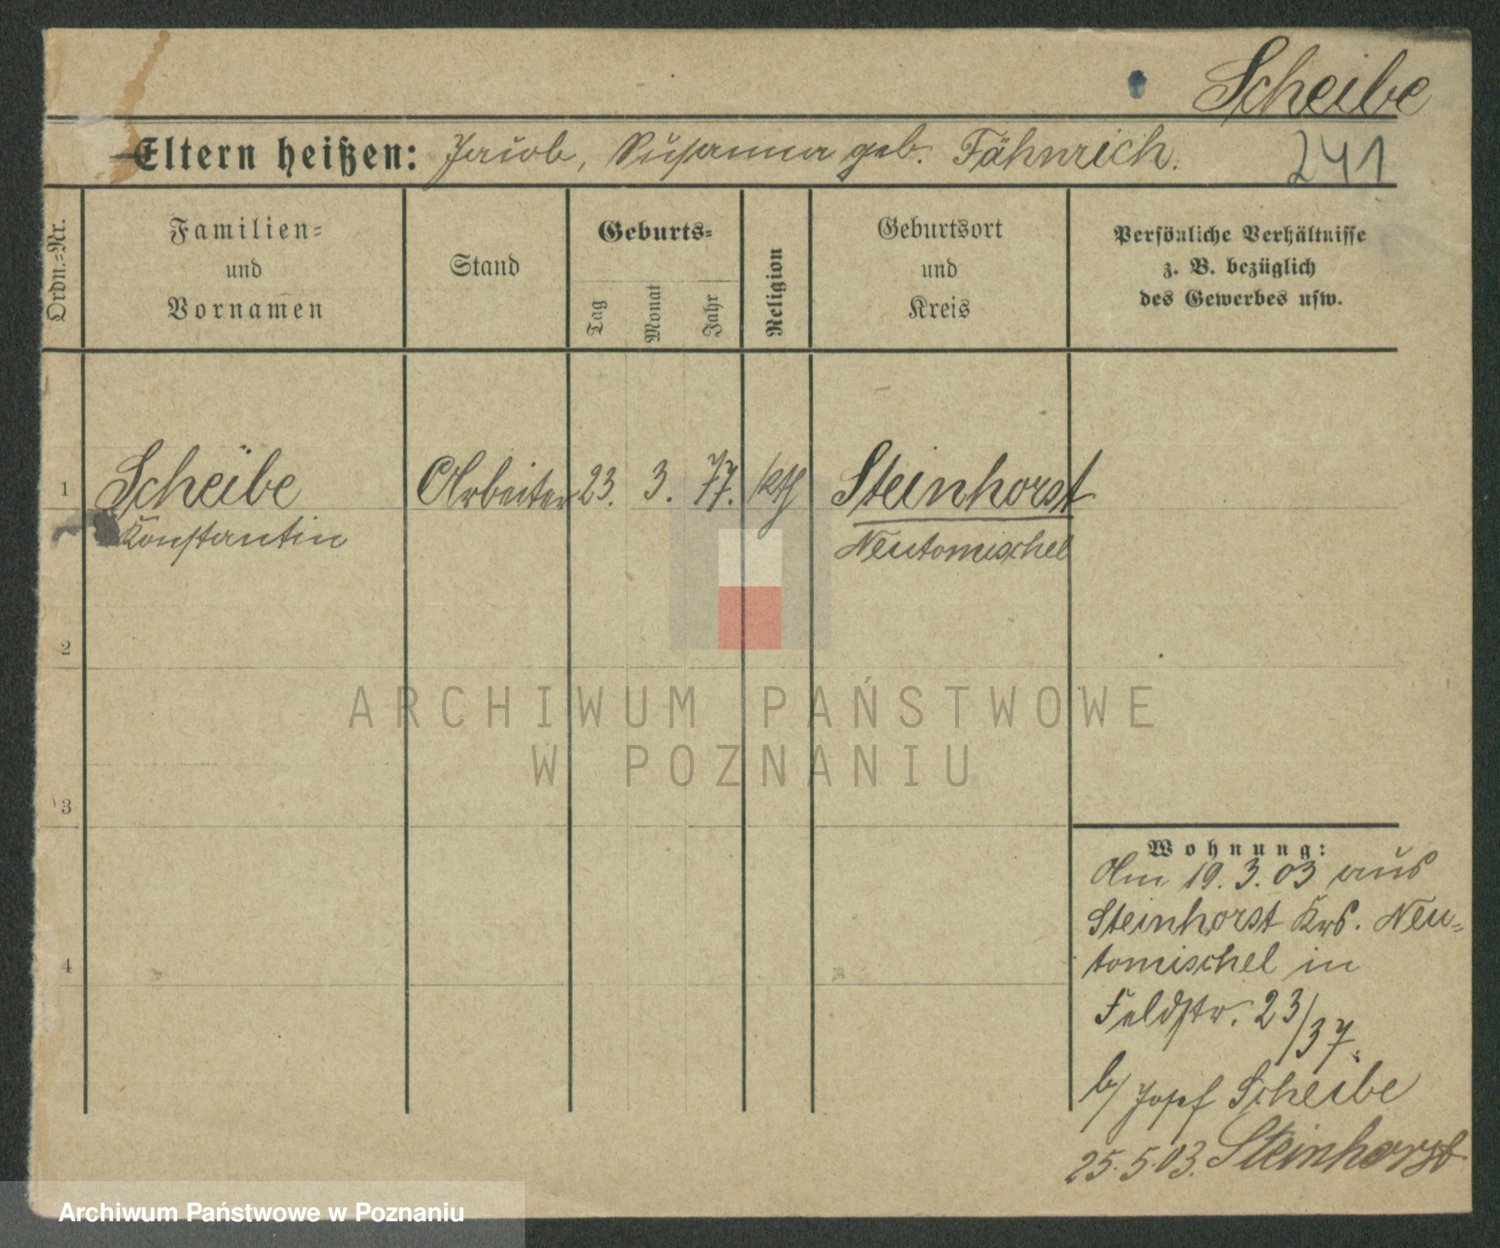 Scheibe
Eltern heißen: Jacob, Susanna geb. Fähnrich.
241
Ordn.-Nr.
Familien-
und
Vornamen
Stand
Geburts-
Tag
Monat
Jahr
Religion
Geburtsort
und
Kreis
Persönliche Verhältnisse
z. B. bezüglich
des Gewerbes usw.
1
Scheibe
Konstantin
Arbeiter
23.
3.
77.
kth
Steinhorst
Neutomischel
2
3
4
Wohnung:
Am 19.3.03 aus
Steinhorst Krs. Neu-
tomischel in
Feldstr. 23/37.
b/ Josef Scheibe
25.5.03. Steinhorst
ARCHIWUM PAŃSTWOWE
W POZNANIU
Archiwum Państwowe w Poznaniu